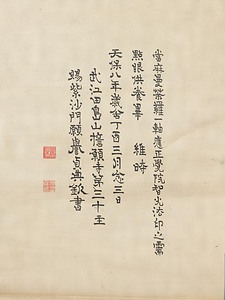 當麻曼荼羅一軸應正覺院智光法印之需
點眼供養畢　維時
天保八年歳舍丁酉三月念三日
武江田島山誓願寺第三十主
賜紫沙門願譽貞典敬書